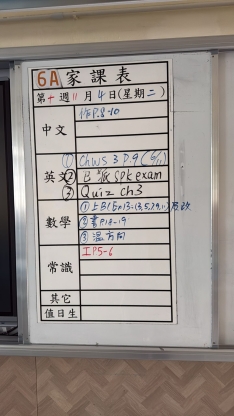 6A 家課表
第十週 11月4日(星期二)
中文
作P.8-10
英文
① Ch WS 3 P.9 (6/11)
② B 派 Spk exam
③ Quiz ch3
數學
② 書P.18-19
③ 溫方向
常識
工P5-6
其它
值日生